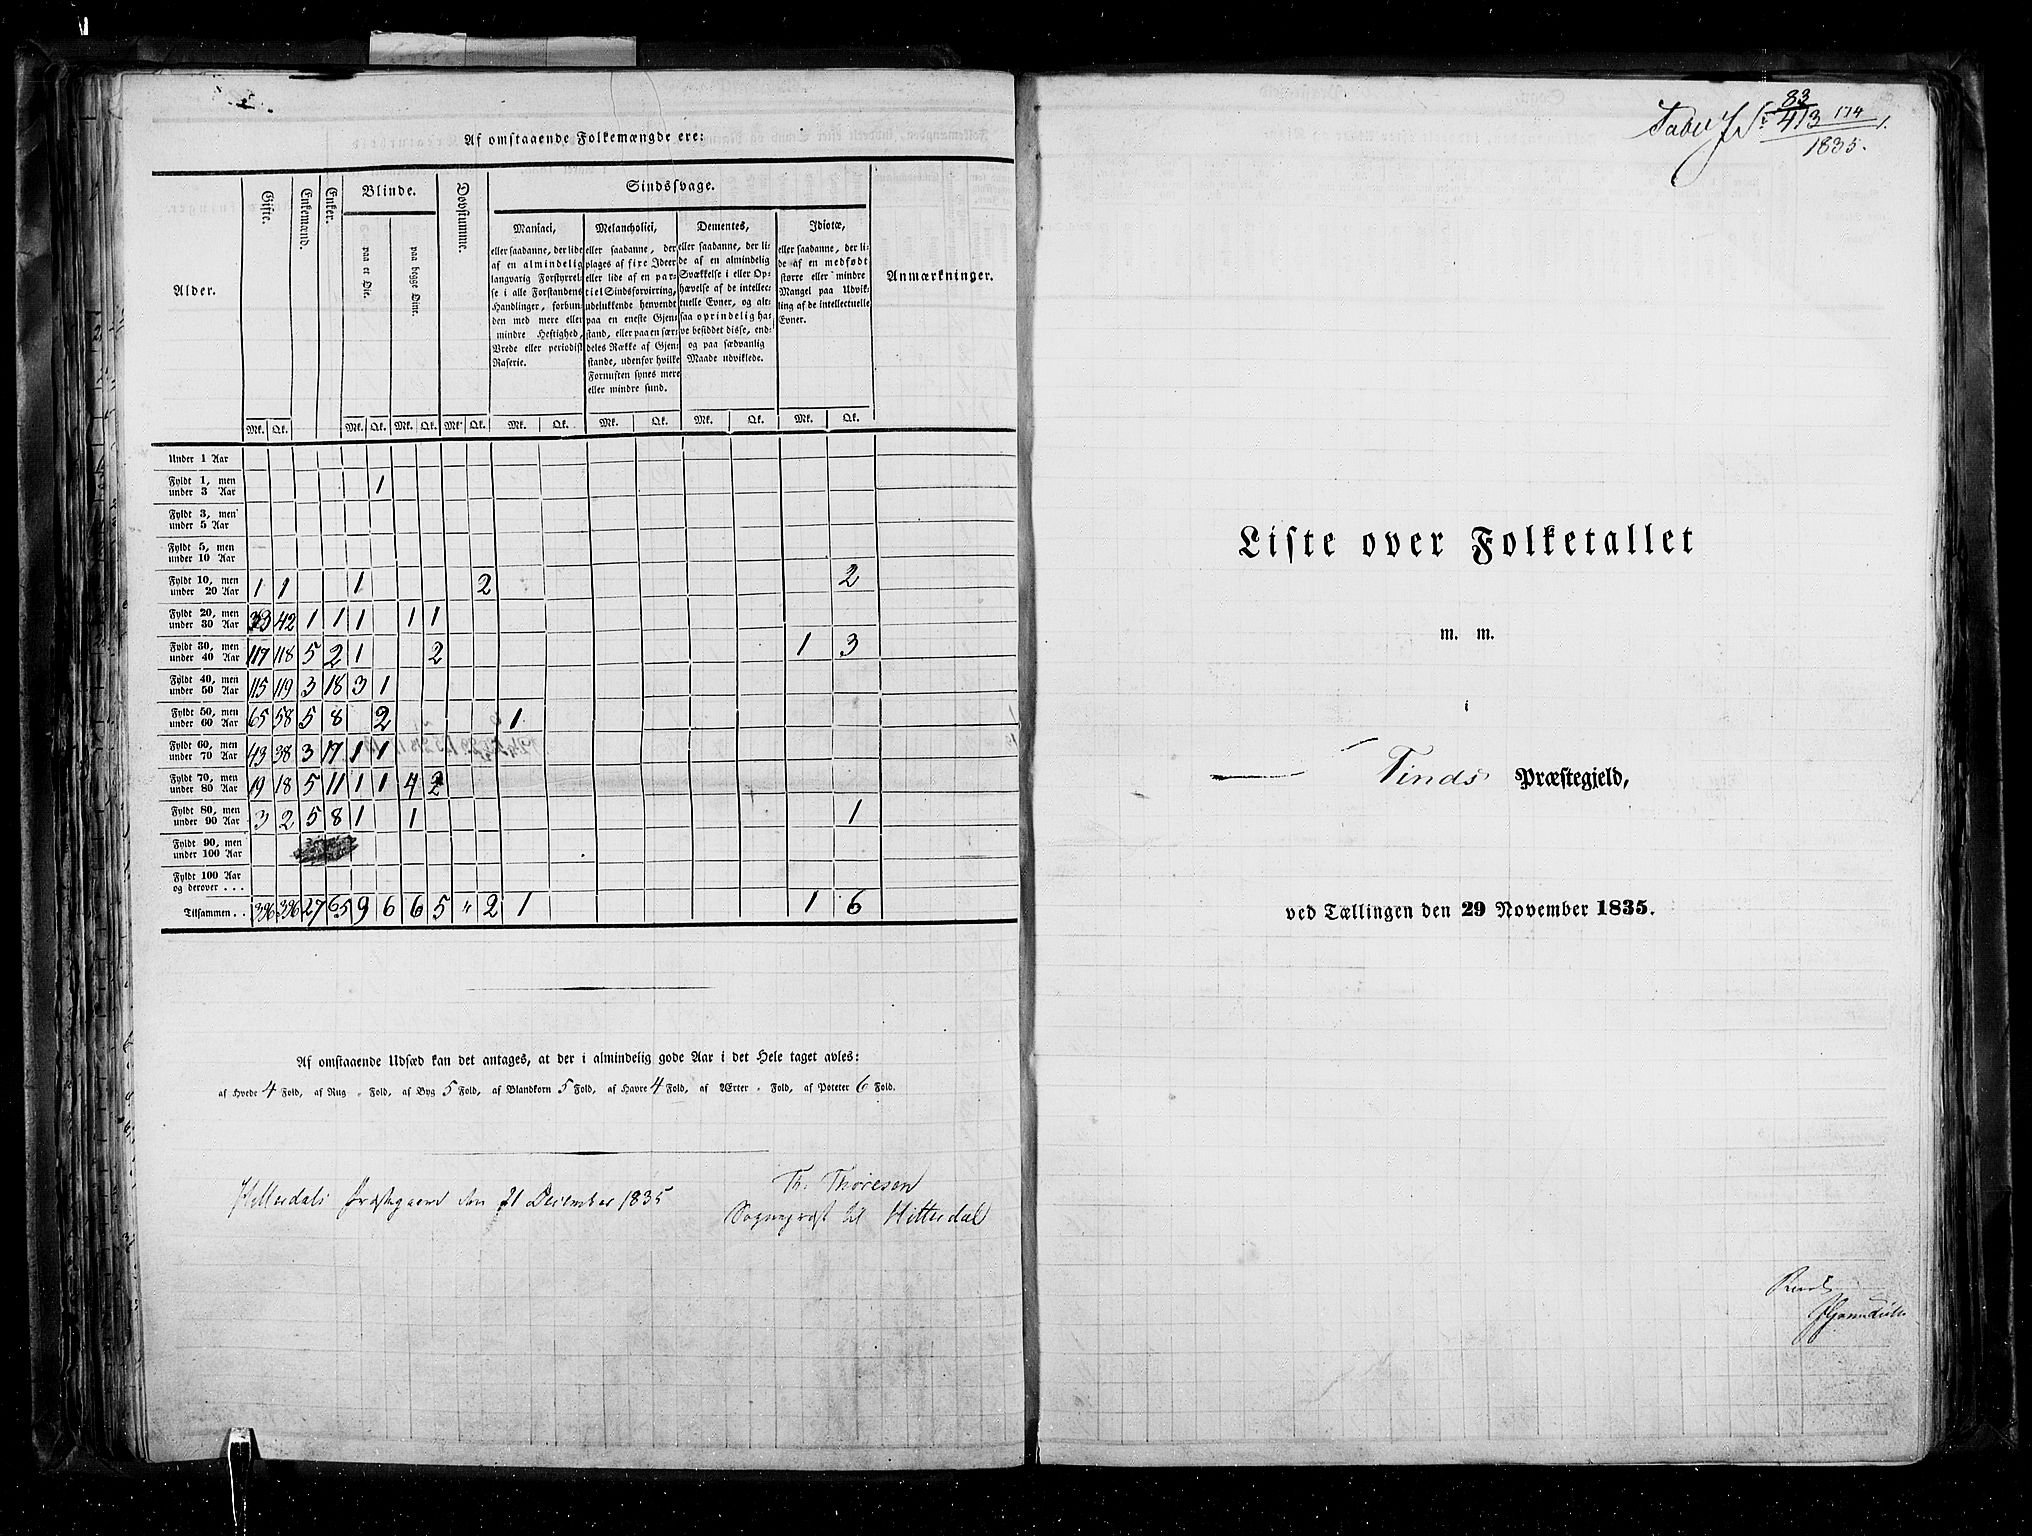 Af omstaaende Folkemængde ere:
Alder.
Gifte.
Enkemænd.
Enker.
Blinde.
paa et Øie.
paa begge Øine.
Døvstumme.
Sindssvage.
Maniaci,
eller saadanne, der lide
af en almindelig
langvarig Forstyrrel-
se i alle Forstandens
Handlinger, forbun-
den med mere eller
mindre Heftighed,
Vrede eller periodisk
Raserie.
Melancholici,
eller saadanne, der
plages af fixe Ideer
eller lide af en par-
tiel Sindsforvirring,
udelukkende henvendt
paa en eneste Gjen-
stand, eller paa en sær-
deles Række af Gjen-
stande, udenfor hvilke
Fornuften synes mere
eller mindre sund.
Dementes,
eller saadanne, der li-
de af en almindelig
Svækkelse i eller Op-
hævelse af de intellec-
tuelle Evner, og alt-
saa oprindelig ha-
ve besiddet disse, end-
og paa sædvanlig
Maade udviklede.
Idiotæ,
eller saadanne, der li-
de af en medfødt
større eller mindre
Mangel paa Udvik-
ling af de intellectuelle
Evner.
Anmærkninger.
Mk. Qk. Mk. Qk. Mk. Qk. Mk. Qk. Mk. Qk. Mk. Qk. Mk. Qk. Mk. Qk.
Under 1 Aar
Fyldt 1, men
under 3 Aar 1
Fyldt 3, men
under 5 Aar
Fyldt 5, men
under 10 Aar
Fyldt 10, men
under 20 Aar 1 1 1 2 2
Fyldt 20, men
under 30 Aar 33 42 1 1 1 1 1
Fyldt 30, men
under 40 Aar 117 118 5 2 1 2 1 3
Fyldt 40, men
under 50 Aar 115 119 3 18 3 1
Fyldt 50, men
under 60 Aar 65 58 5 8 2 1
Fyldt 60, men
under 70 Aar 43 38 3 17 1 1
Fyldt 70, men
under 80 Aar 19 18 5 11 1 1 4 2
Fyldt 80, men
under 90 Aar 3 2 5 8 1 1 1
Fyldt 90, men
under 100 Aar
Fyldt 100 Aar
og derover . . .
Tilsammen . . 396 396 27 65 9 6 6 5 " 2 1 1 6
Af omstaaende Udsæd kan det antages, at der i almindelig gode Aar i det Hele taget avles:
af Hvede 4 Fold, af Rug " Fold, af Byg 5 Fold, af Blandkorn 5 Fold, af Havre 4 Fold, af Ærter " Fold, af Poteter 6 Fold.
Hitterdals Præstegaard den 21 December 1835
Th. Thoresen
Sognepræst til Hitterdal
83
413 174
1835.
Liste over Folketallet
m. m.
i
Tinds Præstegjeld,
ved Tællingen den 29 November 1835.